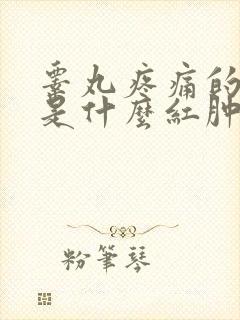 睾丸疼痛的
是什麼紅肿
粉筆琴